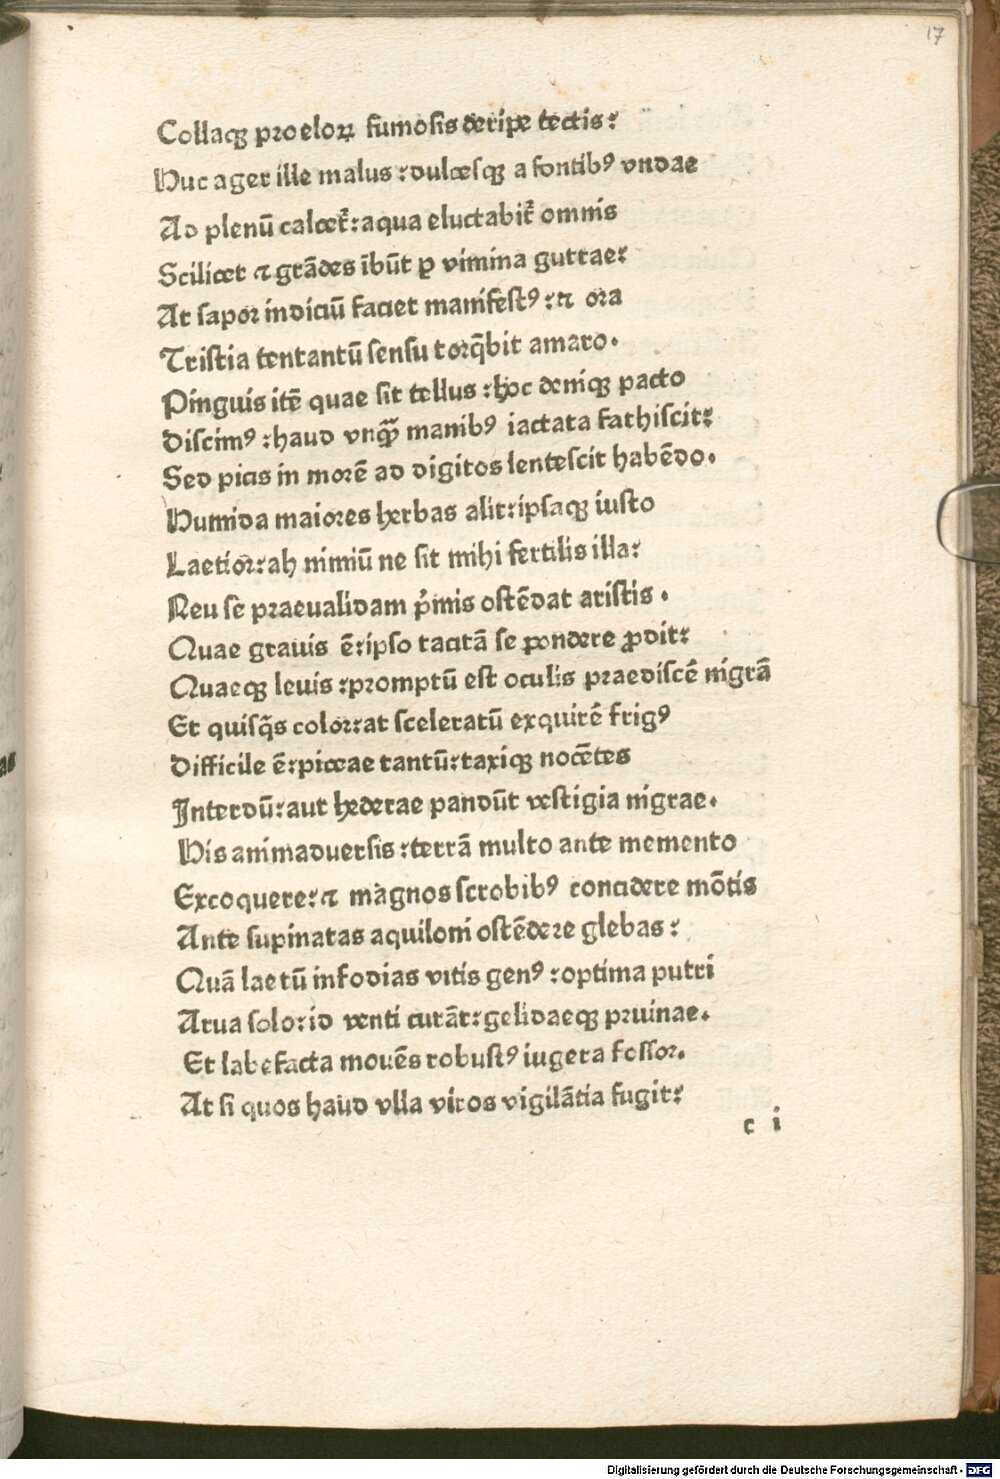 17
Collaqꝫ proeloꝝ fumosis deripe tectis:
Huc ager ille malus: dulcesqꝫ a fontibꝰ vndae
Ad plenū calcet᷑: aqua eluctabit᷑ omnis
Scilicet ⁊ grādes ībūt ꝑ vimina guttae:
At sapor indiciū faciet manifestꝰ: ⁊ ora
Tristia tentantū sensu torq̄bit amaro.
Pinguis itē quae sit tellus: hoc deniqꝫ pacto
Discimꝰ: haud vnqᷓ manibꝰ iactata fathiscit:
Sed picis in morē ad digitos lentescit habēdo.
Humida maiores herbas alit: ipsaqꝫ iusto
Laetior: ah nimiū ne sit mihi fertilis illa:
Neu se praeualidam p̓mis ostēdat aristis.
Quae grauis ē: ipso tacitā se pondere ꝓdit:
Quaeqꝫ leuis: promptū est oculis praediscē nigrā
Et quisq̄s color: at sceleratū exquirē frigꝰ
Difficile ē: piceae tantū: taxiqꝫ nocētes
Interdū: aut hederae pandūt vestigia nigrae.
His animaduersis: terrā multo ante memento
Excoquere: ⁊ magnos scrobibꝰ concidere mōtis
Ante supinatas aquiloni ostēdere glebas:
Quā laetū infodias vitis genꝰ: optima putri
Arua solo: id venti curāt: gelidaeqꝫ pruinae.
Et labefacta mouēs robustꝰ iugera fossor.
At si quos haud vlla viros vigilātia fugit:
c i
Digitalisierung gefördert durch die Deutsche Forschungsgemeinschaft - DFG